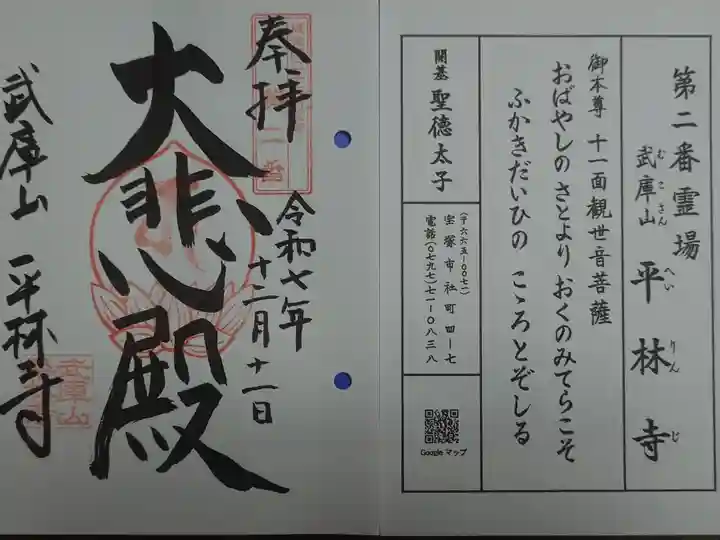 第二番霊場
武庫山 平林寺
むこさん へいりんじ
御本尊 十一面観世音菩薩
おばやしの さとより おくのみてらこそ
ふかきだいひの こゝろとぞしる
開基 聖徳太子
(〒六六五-〇〇七一)
宝塚市社町四-七
電話(〇七九七)七一-〇八三八
Google マップ
奉拝
二番
令和七年
十二月十一日
大悲殿
武庫山 平林寺
武庫山